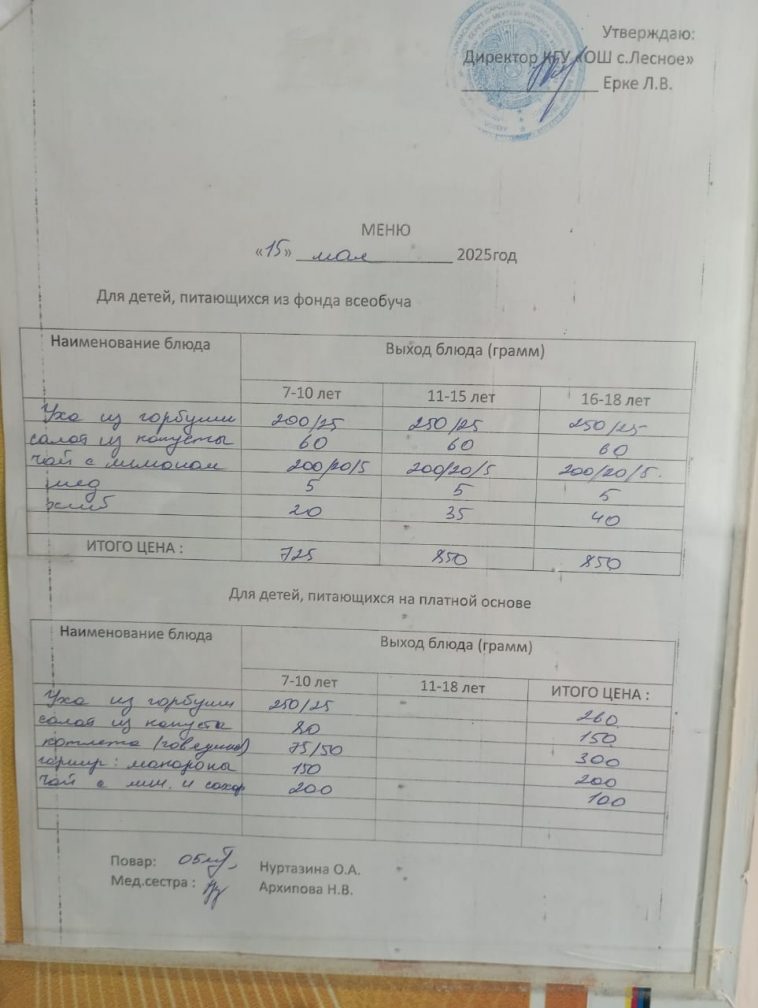 Утверждаю:
Директор КГУ «ОШ с.Лесное»
Ерке Л.В.
МЕНЮ
«15» мая 2025год
Для детей, питающихся из фонда всеобуча
Наименование блюда Выход блюда (грамм)
7-10 лет 11-15 лет 16-18 лет
Уха из горбуши 200/25 250/25 250/25
салат из капусты 60 60 60
чай с лимоном 200/20/5 200/20/5 200/20/5.
мёд 5 5 5
хлеб 20 35 40
ИТОГО ЦЕНА : 725 850 850
Для детей, питающихся на платной основе
Наименование блюда Выход блюда (грамм)
7-10 лет 11-18 лет ИТОГО ЦЕНА :
Уха из горбуши 250/25 260
салат из капусты 80 150
котлета (говядина) 75/50 300
гарнир: макароны 150 200
чай с лим. и сахар 200 100
Повар: Нуртазина О.А.
Мед.сестра : Архипова Н.В.